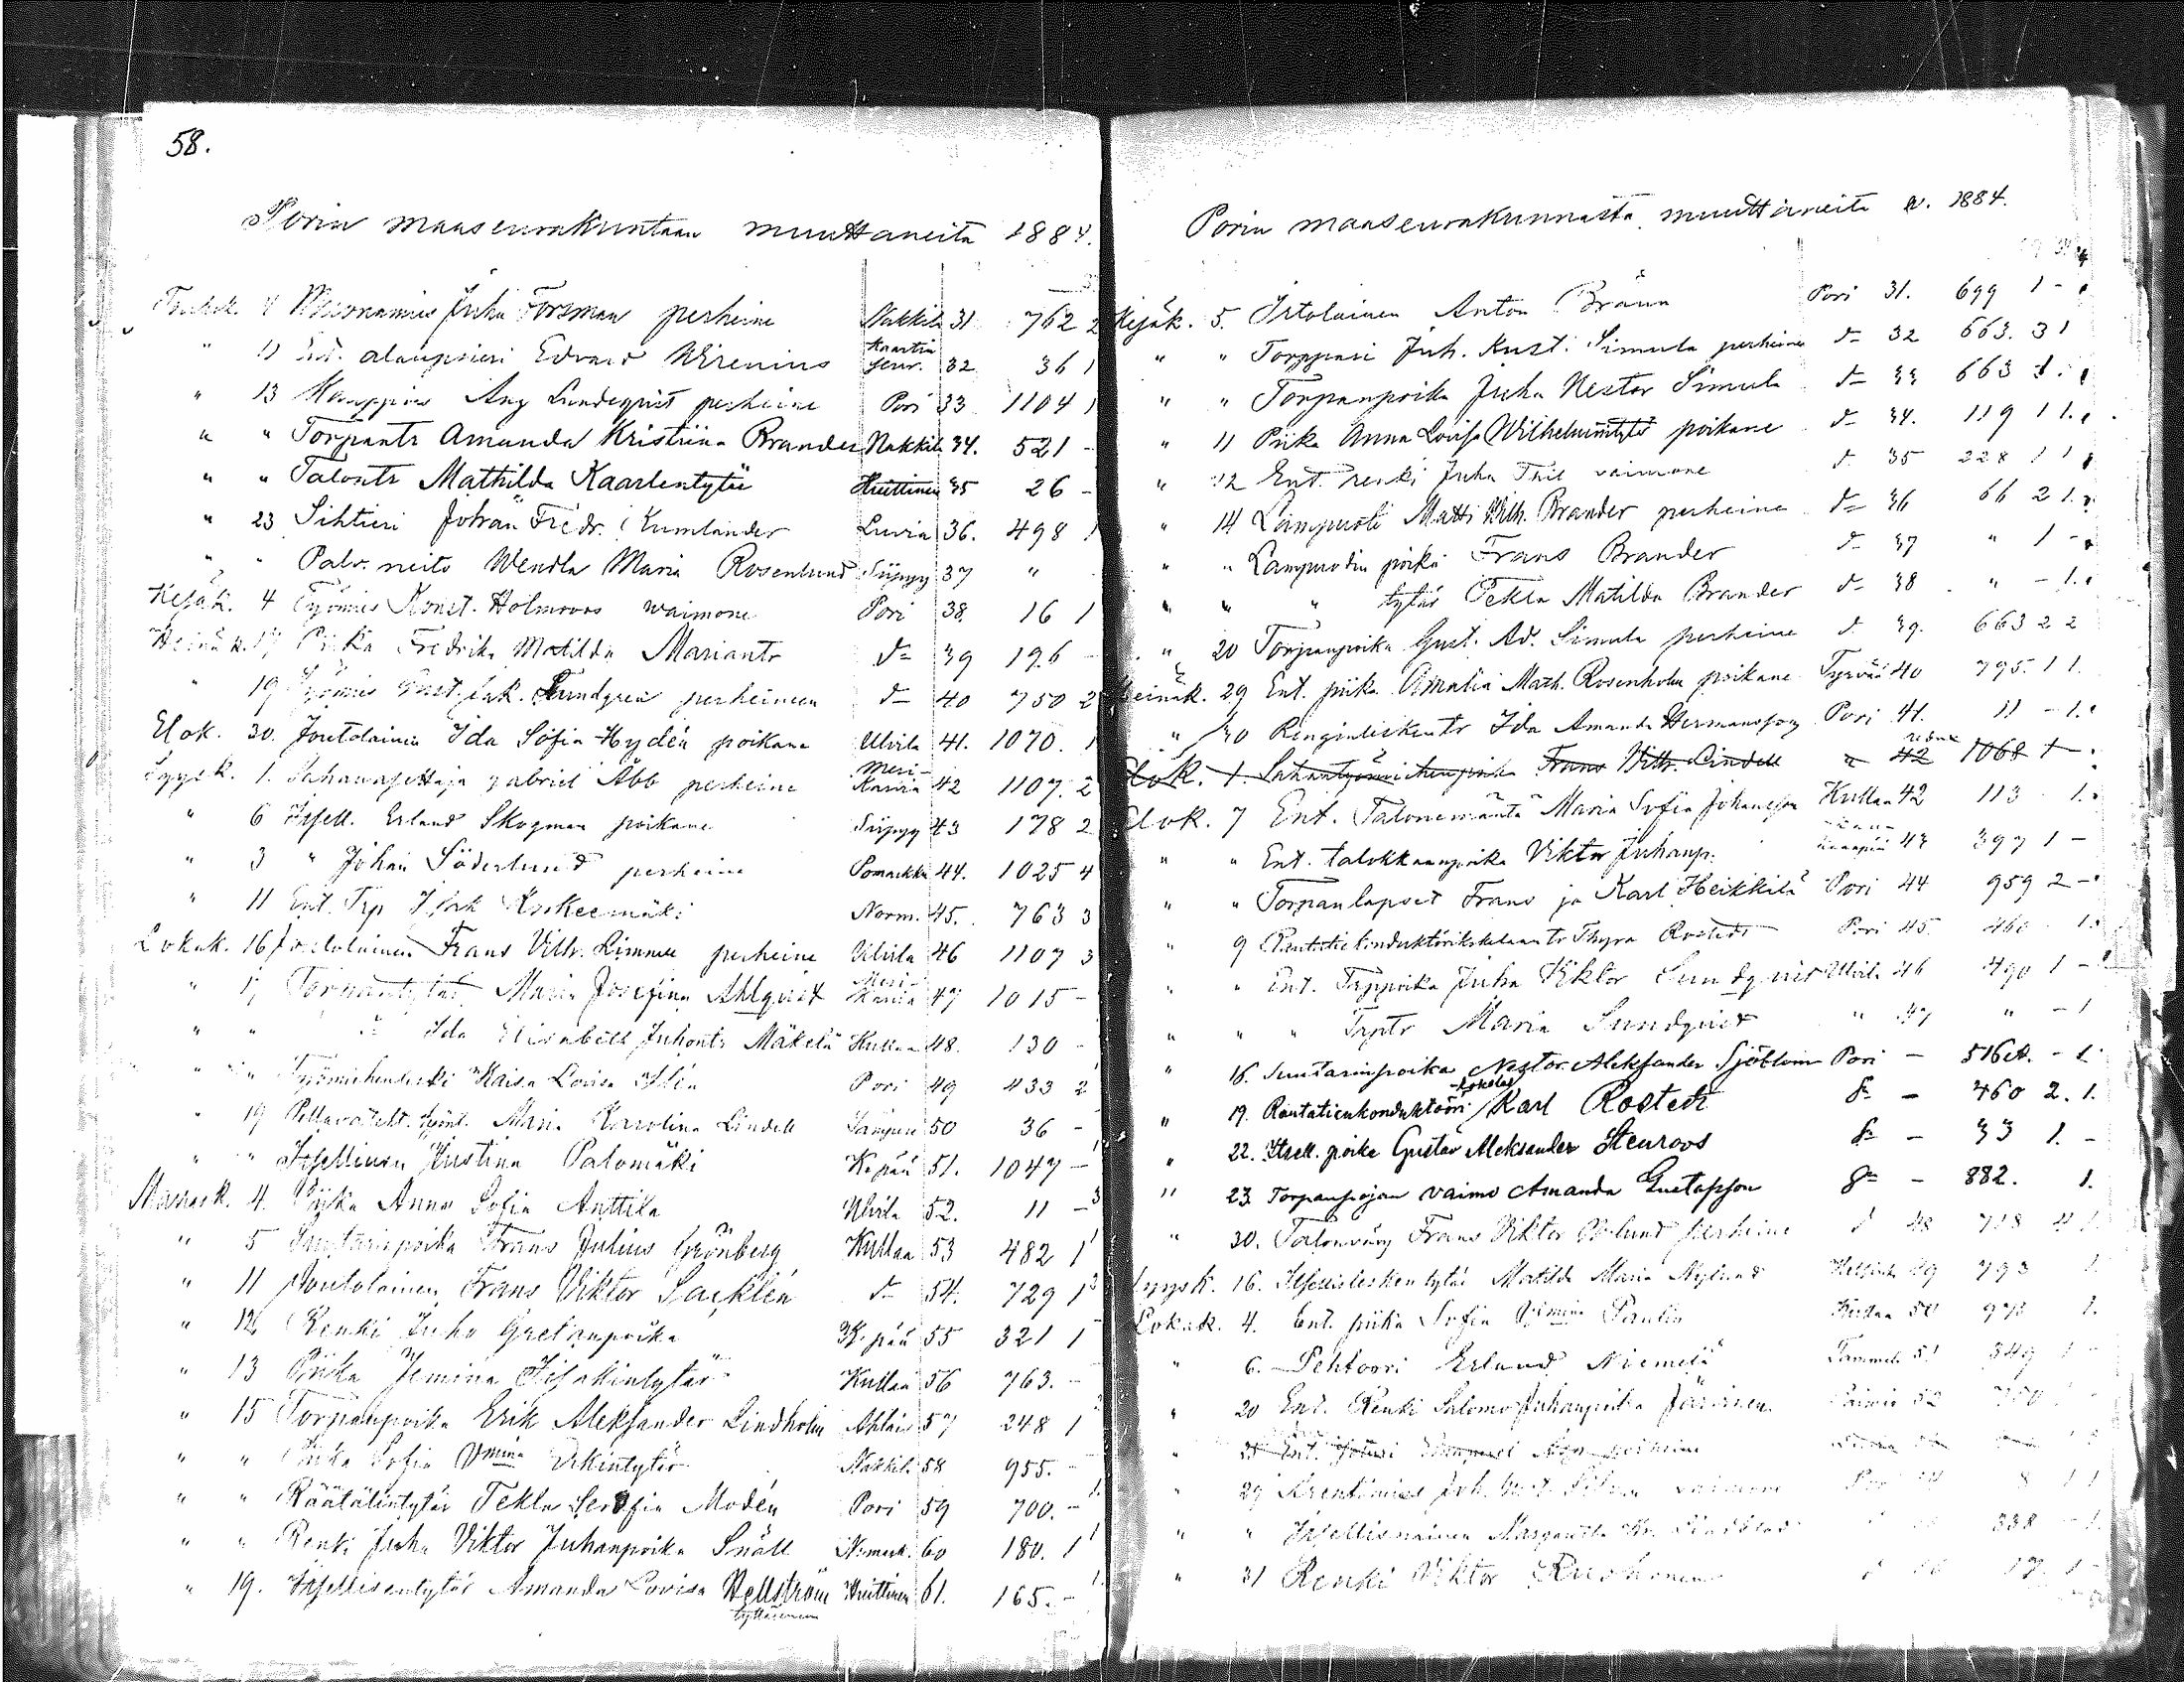 58.
Porin maaseurakuntaan muuttaneita 1884.
Toukok. 4 Juha Forsman perheine Nakkila 31 762 2
" 11 Ent. alaupsieri Edvard Wirenius Kaartin seur. 32 36 1
" 13 Kauppias Aug Lundeqvist perheine Pori 33 1104 1
" " Torpantr Amanda Kristiina Brander Nakkila 34. 521 -
" " Talontr Mathilda Kaarlentytär Huittinen 35 26 -
" 23 Sihtieri Johan Fredr. Kumlander Luvia 36. 498 1
" " Palv. neito Wendla Maria Rosenlund Siipyy 37 "
Kesäk. 4 Työmies Konst. Holmroos waimone Pori 38. 16 1
Heinäk. 17 Piika Fredrika Matilda Mariantr d:o 39 196 -
" 19 Työmies Gust. Isak. Sundgren perheineen d:o 40 750 2
Elok. 30. Joutolainen Ida Sofia Hydén poikane Ulvila 41. 1070. 1
Syysk. 1. Sahanasettaja Gabriel Åbb perheine Meri-Karvia 42 1107. 2
" 6 Itsell. Erland Skogman poikane Siipyy 43 178 2
" 3 " Johan Söderlund perheine Pomarkku 44. 1025 4
" 11 Ent. Trp Isak Koskeemäki Norm. 45. 763 3
Lokak. 16 Joutolainen Frans Vilh. Rimmee perheine Ulvila 46 1107 3
" 17 Torpantytär Maria Josefina Ahlqvist Meri-Karvia 47 1015 -
" " " Ida Elisabeth Juhontr Mäkelä Kullaa 48. 130 -
" " Työmiehenleski Kaisa Lovisa Pori 49 433 2
" 19 Maria Karolina Lindell 50 36 -
" " Itsellinen Justina Palomäki K:pää 51. 1047 -
Marrask. 4. Piika Anna Sofia Anttila Ulvila 52. 11 - 3
" 5 Suutarinpoika Frans Julius Grönberg Kullaa 53 482 1
" 11 Joutolainen Frans Viktor Saeklén d:o 54. 729 1
" 12 Renki Juho Gretanpoika K:pää 55 321 1
" 13 Piika Jemina Iisakintytär Kullaa 56 763. -
" 15 Torpanpoika Erik Aleksander Lindholm Ahlais 57 248 1
" " Piika Sofia Vmina Nakkila 58 955. -
" " Räätälintytär Tekla Serafia Modén Pori 59 700. -
" " Renki Juha Viktor Juhanpoika Snäll N:mark. 60 180. 1
" 19. Itsellisentytär Amanda Lovisa Hellström tyttärineen Huittinen 61. 165. -
Porin maaseurakunnasta muuttaneita v. 1884.
Kesäk. 5. Irtolainen Anton Brann Pori 31. 699 1 -
" " Torppari Juh. Kust. Simula perheine d:o 32 663. 3 1
" " Torpanpoika Juha Nestor Simula d:o 33 663 1.
" 11 Piika Anna Lovisa Wilhelmintytär poikane d:o 34. 119 1 1.
" 12 Ent. renki Juha vaimone d:o 35 228 1 1
" 14 Lampuoti Matti Wilh. Brander perheine d:o 36 66 2 1.
" " Lampuodin poika Frans Brander d:o 37 " 1 -
" " " tytär Tekla Matilda Brander d:o 38 " - 1.
" 20 Torpanpoika Gust. Ad. Simula perheine d:o 39. 663 2 2
Heinäk. 29 Ent. piika Amalia Math. Rosenholm poikane Tyrvää 40 795. 1 1.
" 30 Renginleskentr Ida Amanda Hermansson Pori 41. 11 - 1.
Elok. 1. Sahantyömiehenpoika Frans Vilh. Lindell " 42 1068 1 -
Elok. 7 Ent. Talonemäntä Maria Sofia Johansson Kullaa 42 113 1.
" " Ent. talokkaanpoika Viktor Juhanp. 43 397 1 -
" " Torpanlapset Frans ja Karl Heikkilä Pori 44 959 2 -
" 9 Thyra Rostedt Pori 45. 460 - 1.
" " Ent. Trppoika Juha Viktor Sundqvist Ulvila 46 490 1 -
" " " Trptr Maria Sundqvist " 47 " - 1
" 16. Suutarinpoika Nestor Aleksander Sjöblom Pori - 516 - 1.
" 19. Rautatienkonduktööri-kokelas Karl Rostedt d:o - 460 2. 1.
" 22. Itsell. poika Gustav Aleksander Stenroos d:o - 33 1. -
" 23. Torpanpojan vaimo Amanda Gustafsson d:o - 882. 1.
" 30. Frans Viktor perheine d:o 48 718 4
Syysk. 16. Itsellisleskentytär Matilda Maria Nylund 49 793 1.
Lokak. 4. Ent. piika Sofia Vmina Paulin Kullaa 50 1.
" 6. Pehtoori Erland Niemelä Tammela 51 349 1 -
" 20 Ent. Renki Salomo Juhanpoika Järvinen 52
" 29 Juh. vaimone Pori 8 1 1
" " Itsellisnainen Margareetta Lindblad 338 - 1.
" 31 Renki Viktor 17. 1 -